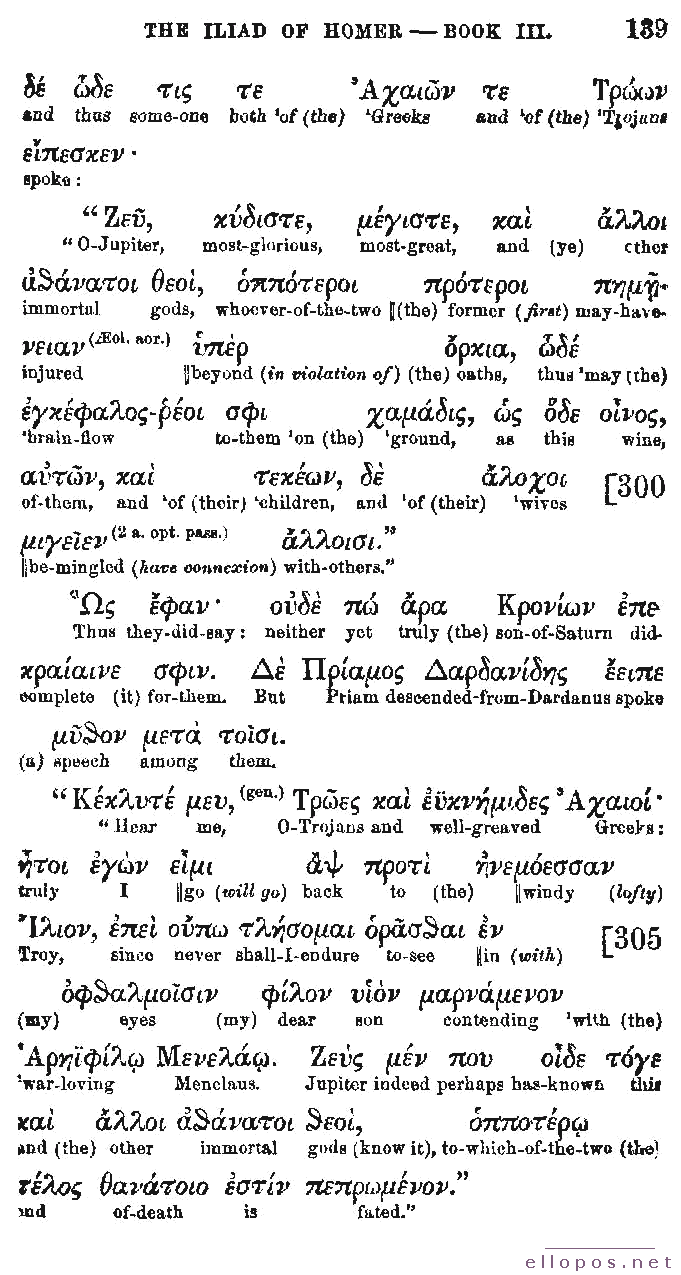 THE ILIAD OF HOMER — BOOK III. 139
δέ ὧδε τις τε Ἀχαιῶν τε Τρώων
and thus some-one both 'of (the) 'Greeks and 'of (the) 'Trojans
εἴπεσκεν·
spoke:
“Ζεῦ, κύδιστε, μέγιστε, καὶ ἄλλοι
“O-Jupiter, most-glorious, most-great, and (ye) other
ἀϑάνατοι θεοί, ὁππότεροι πρότεροι πημή-
immortal gods, whoever-of-the-two ‖(the) former (first) may-have-
νειαν (Æol. aor.) ὑπὲρ ὅρκια, ὧδέ
injured ‖beyond (in violation of) (the) oaths, thus 'may (the)
ἐγκέφαλος-ῥέοι σφι χαμάδις, ὡς ὅδε οἶνος,
'brain-flow to-them 'on (the) 'ground, as this wine,
αὐτῶν, καὶ τεκέων, δὲ ἄλοχοι [300
of-them, and 'of (their) 'children, and 'of (their) 'wives
μιγεῖεν (2 a. opt. pass.) ἄλλοισι.”
‖be-mingled (have connexion) with-others.”
Ὣς ἔφαν· οὐδὲ πώ ἄρα Κρονίων ἐπε-
Thus they-did-say: neither yet truly (the) son-of-Saturn did-
κραίαινε σφιν. Δὲ Πρίαμος Δαρδανίδης ἔειπε
complete (it) for-them. But Priam descended-from-Dardanus spoke
μῦϑον μετὰ τοῖσι.
(a) speech among them.
“Κέκλυτέ μευ, (gen.) Τρῶες καὶ ἐϋκνήμιδες Ἀχαιοί·
“Hear me, O-Trojans and well-greaved Greeks:
ἤτοι ἐγὼν εἶμι ἂψ προτὶ ἠνεμόεσσαν
truly I ‖go (will go) back to (the) ‖windy (lofty)
Ἴλιον, ἐπεὶ οὔπω τλήσομαι ὁρᾶσϑαι ἐν [305
Troy, since never shall-I-endure to-see ‖in (with)
ὀφϑαλμοῖσιν φίλον υἱὸν μαρνάμενον
(my) eyes (my) dear son contending 'with (the)
Ἀρηϊφίλῳ Μενελάῳ. Ζεύς μέν που οἶδε τόγε
'war-loving Menelaus. Jupiter indeed perhaps has-known this
καὶ ἄλλοι ἀϑάνατοι ϑεοί, ὁπποτέρῳ
and (the) other immortal gods (know it), to-which-of-the-two (the)
τέλος θανάτοιο ἐστίν πεπρωμένον.”
end of-death is fated.”
ellopos.net